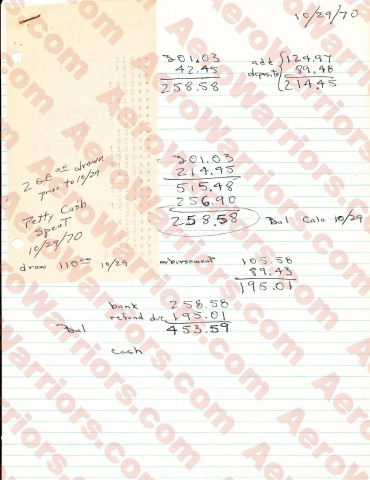 10/29/70
301.03
42.45
258.58
add deposits { 124.97
89.48
214.45
260.00 drawn
prior to 10/29
301.03
214.45
515.48
256.90
258.58 Bal Calc 10/29
Petty Cash
Spent
10/29/70
draw 110.00 10/29
mbursement 105.58
89.43
195.01
bank 258.58
refund due 195.01
Bal 453.59
cash
AeroWarriors.com